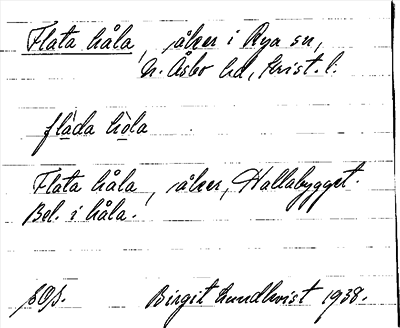 Flata håla, åker i Rya sn,
N. Åsbo hd, Krist. l.
flàda hòla
Flata håla, åker, Hallabygget.
Bel. i håla.
Birgit Lundkvist 1938.